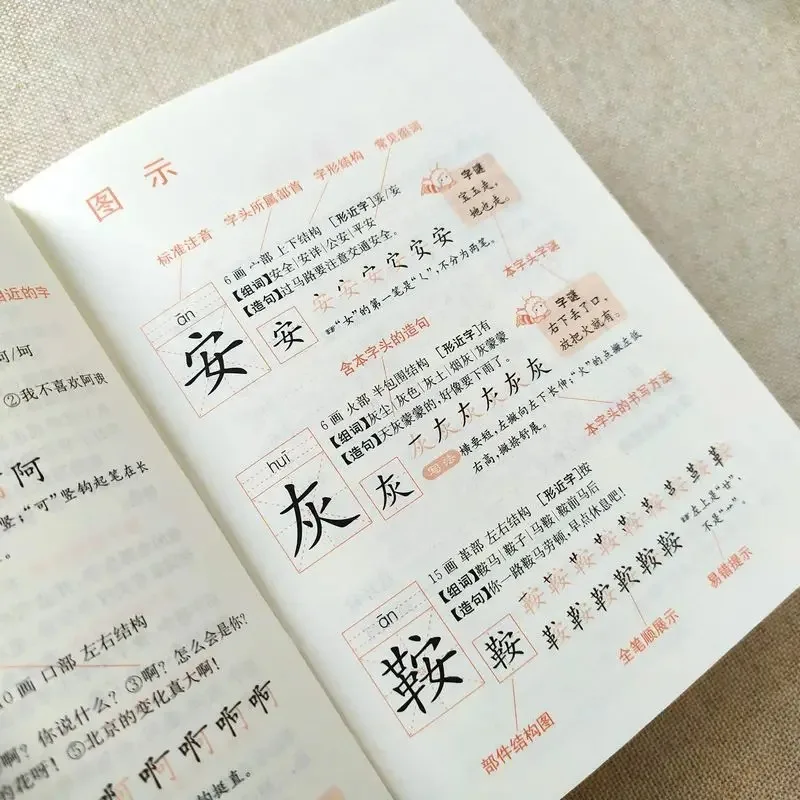 相近的字
阿/坷
②我不喜欢阿谀
阿
竖；“可”竖钩起笔在长
10 画 口部 左右结构
啊？你说什么？③啊？怎么会是你？
⑤北京的变化真大啊！
的花呀！
啊 啊 啊 啊 啊
的挺直。
图示
标准注音
字头所属部首
字形结构
常见组词
ān
安
安
6 画 宀部 上下结构 【形近字】妥/安
【组词】安全|安详|公安|平安
【造句】过马路要注意交通安全。
安安安安安安
“女”的第一笔是“ㄑ”，不分为两笔。
字谜
宝玉走，
她也走。
本字头字谜
含本字头的造句
huī
灰
灰
6 画 火部 半包围结构 【形近字】有
【组词】灰尘|灰色|灰土|烟灰|灰蒙蒙
【造句】天灰蒙蒙的，好像要下雨了。
灰灰灰灰灰灰
写法 横要短，左撇向左下长伸；“火”的点撇左低
右高，撇捺舒展。
字谜
右下丢了口，
放把火就有。
本字头的书写方法
ān
鞍
鞍
15 画 革部 左右结构 【形近字】按
【组词】鞍马|鞍子|马鞍|鞍前马后
【造句】你一路鞍马劳顿，早点休息吧！
鞍鞍鞍鞍鞍鞍鞍鞍
左上是“廿”，
不是“艹”。
鞍鞍鞍鞍鞍鞍鞍
易错提示
全笔顺展示
部件结构图